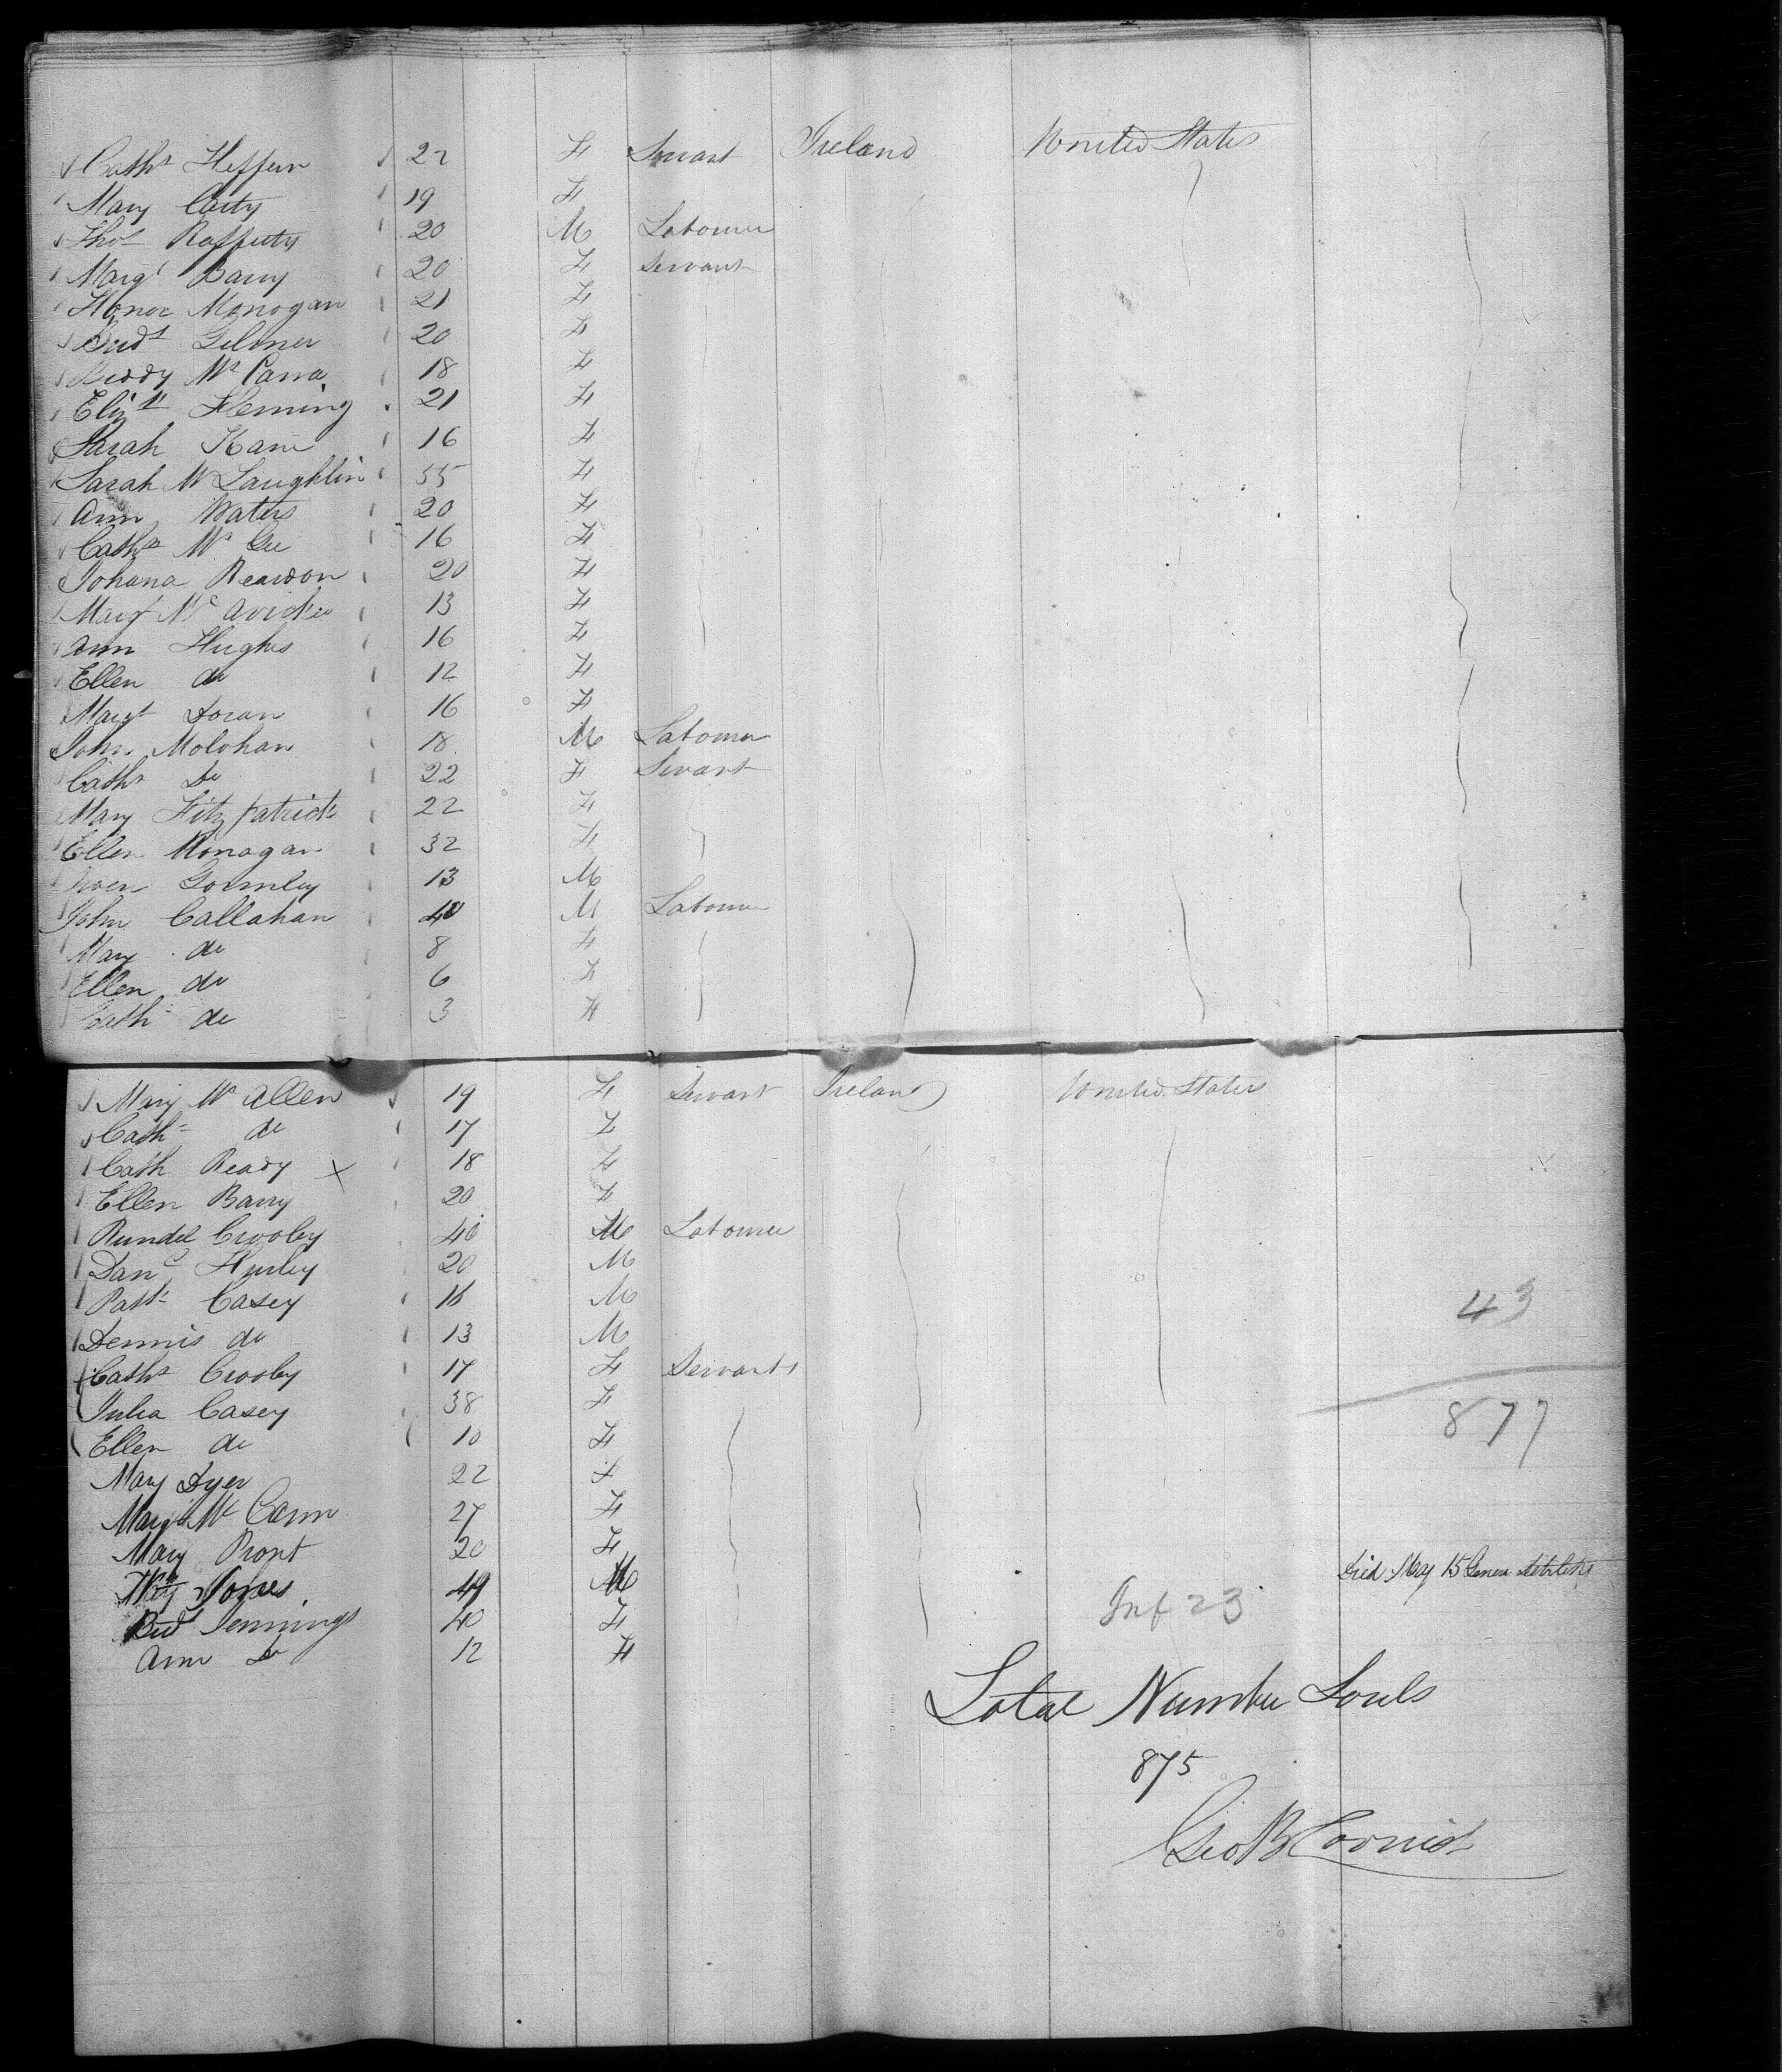 Cathe Heffern 22 F Servant Ireland United States
Mary Carty 19 F
Thos Rafferty 20 M Labourer
Margt Barry 20 F Servant
Honor Monogan 21 F
Bridt Gilmer 20 F
Biddy Mc Canna 18 F
Elizth Fleming 21 F
Sarah Kane 16 F
Sarah Mc Laughlin 55 F
Ann Waters 20 F
Cathe Mc Gee 16 F
Johana Reardon 20 F
Margt Mc Avickee 13 F
Ann Hughes 16 F
Ellen do 12 F
Margt Doran 16 F
John Molohan 18 M Labourer
Cathe Do 22 F Servant
Mary Fitzpatrick 22 F
Ellen Monagan 32 F
Owen Gormley 13 M
John Callahan 40 M Labourer
Mary do 8 F
Ellen do 6 F
Cath do 3 F
Mary Mc Allen 19 F Servant Ireland United States
Cath do 17 F
Cath Ready X 18 F
Ellen Barry 20 F
Crooley 40 M Labourer
Danl Hurley 20 M
Patk Casey 16 M
Dennis do 13 M
43
Cathe Crooley 17 F Servants
Julia Casey 38 F
877
Ellen do 10 F
Mary Dyer 22 F
Margt Mc Cann 27 F
Mary Pront 20 F
Jones 49 M Died May 15 General debility
Inf 23
Bridt Jennings 40 F
Ann Do 12 F
Total Number Souls
875
Geo B Cornish